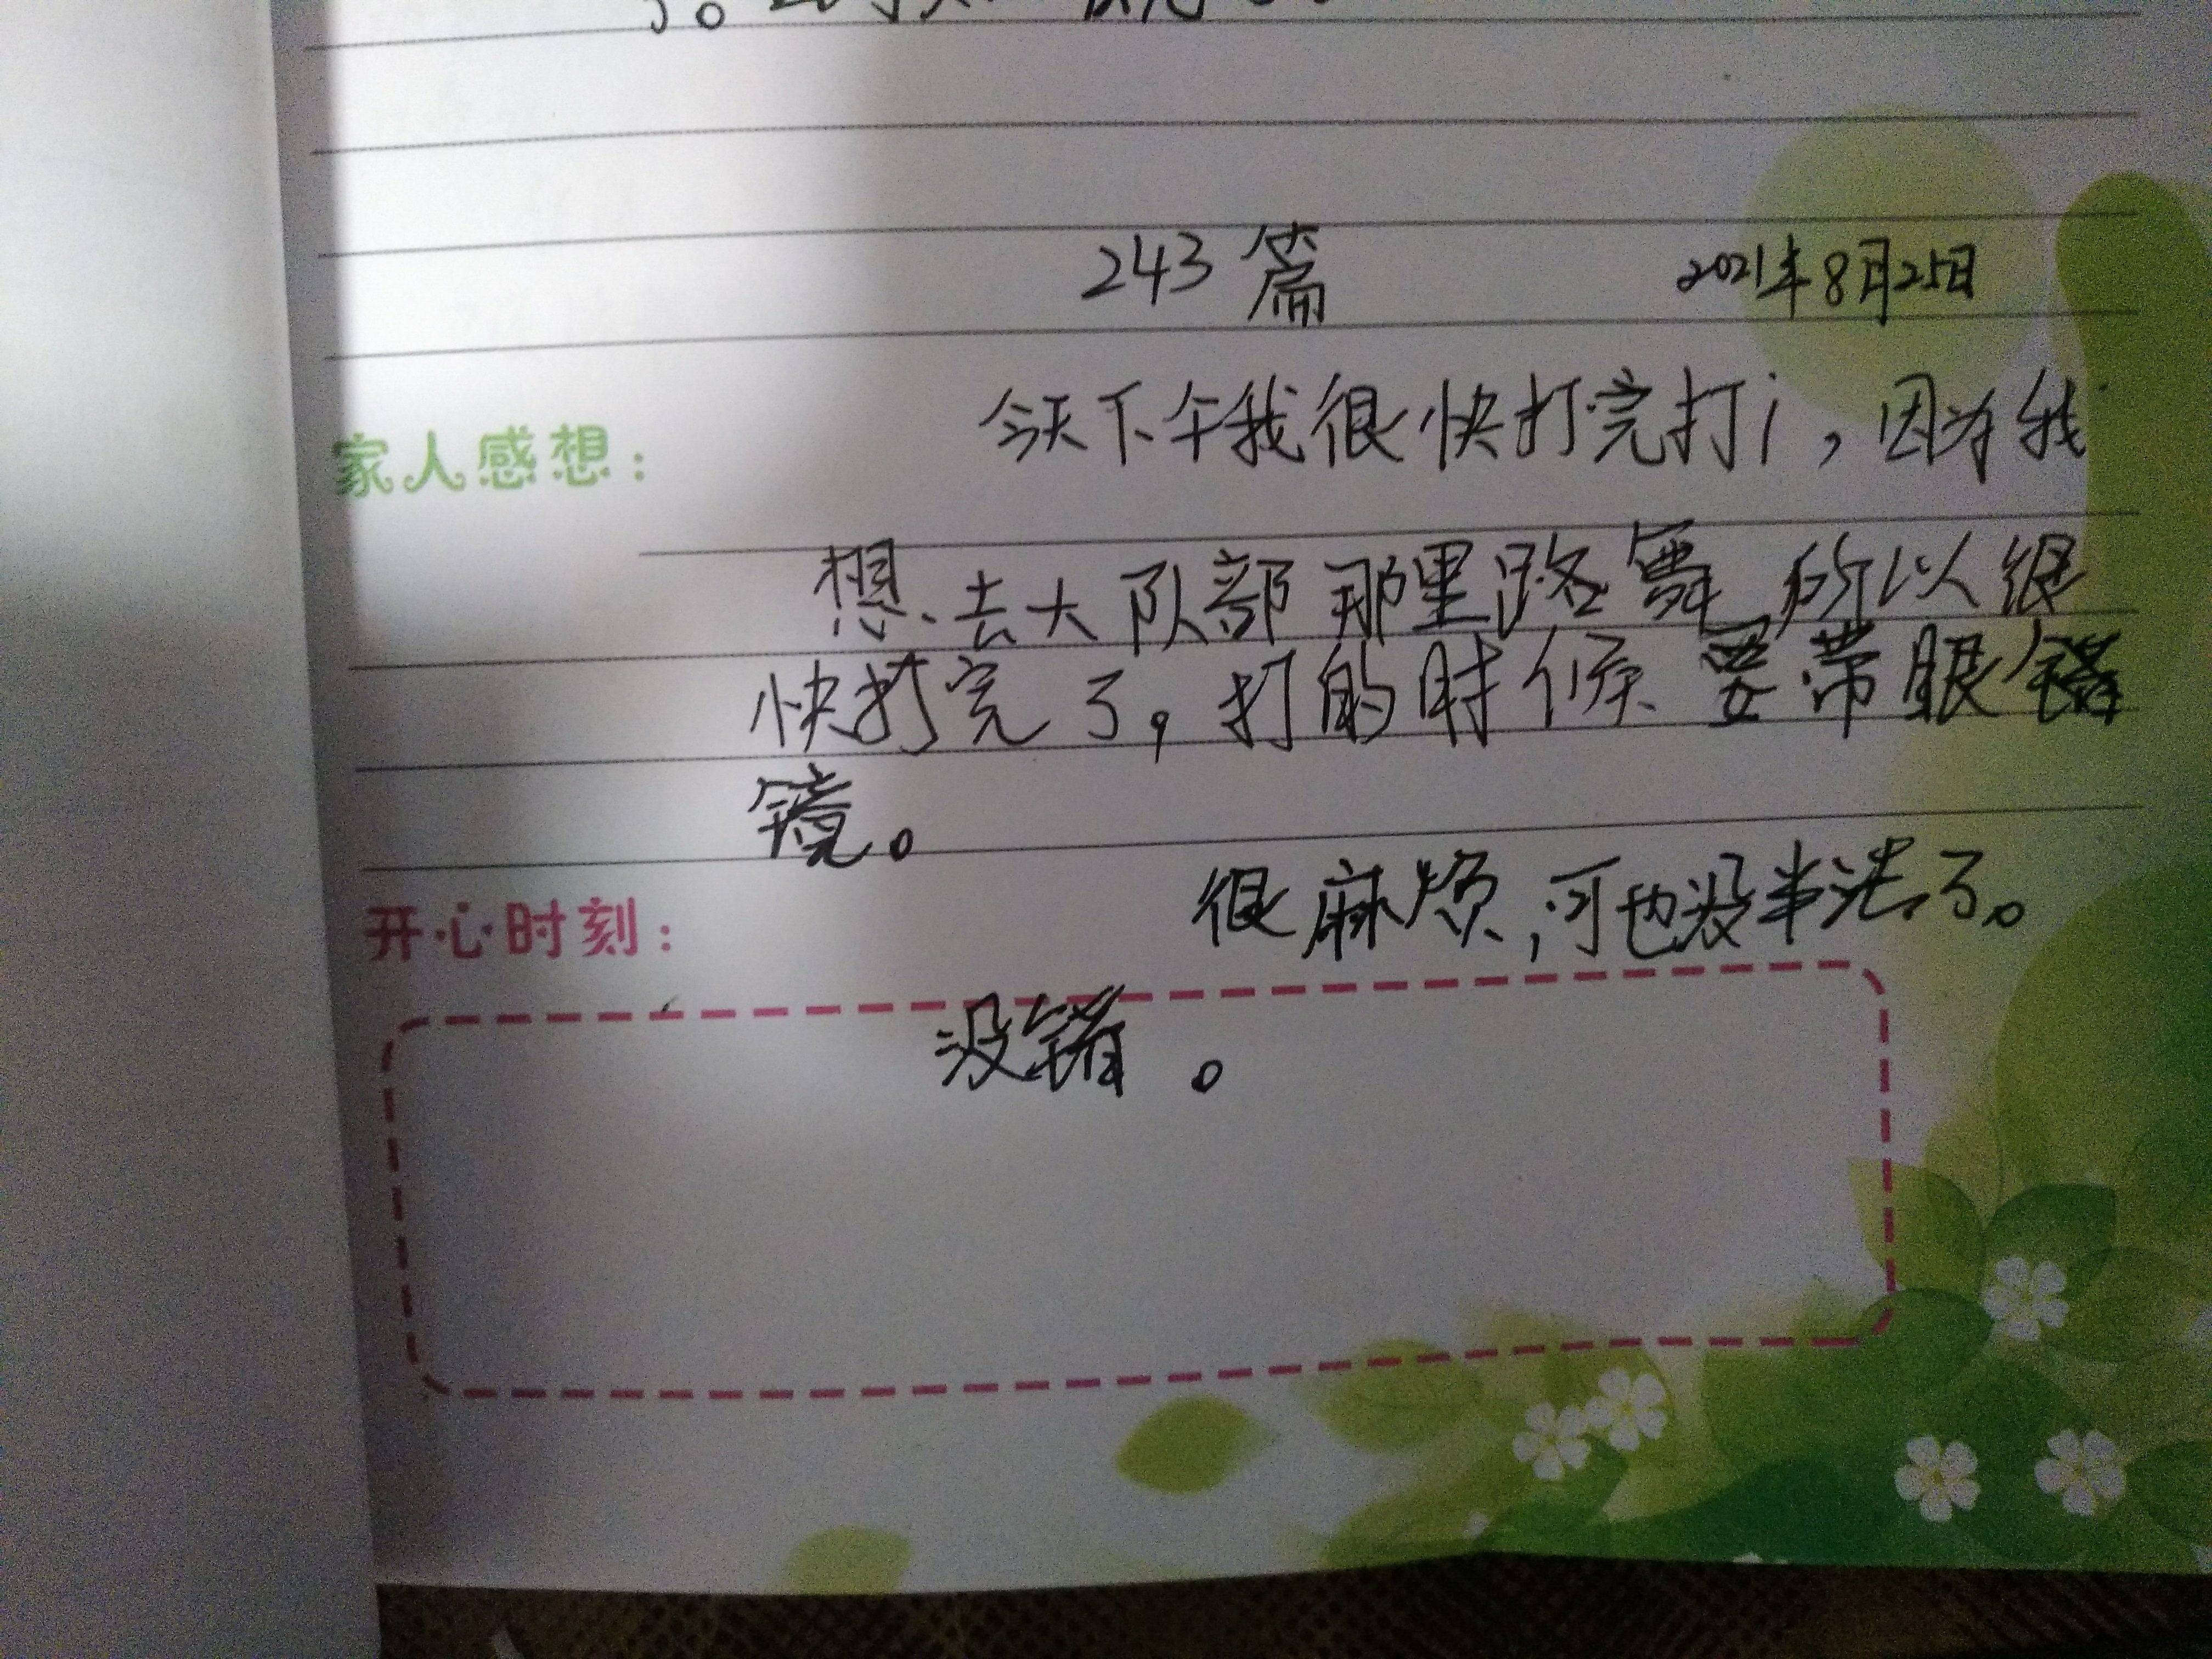 243篇 2021年8月25日
家人感想： 今天下午我很快打完打i，因为我
想去大队部那里路舞，所以很
快打完了，打的时候要带眼
镜。
很麻烦，可也没半法了。
开心时刻：
没错。